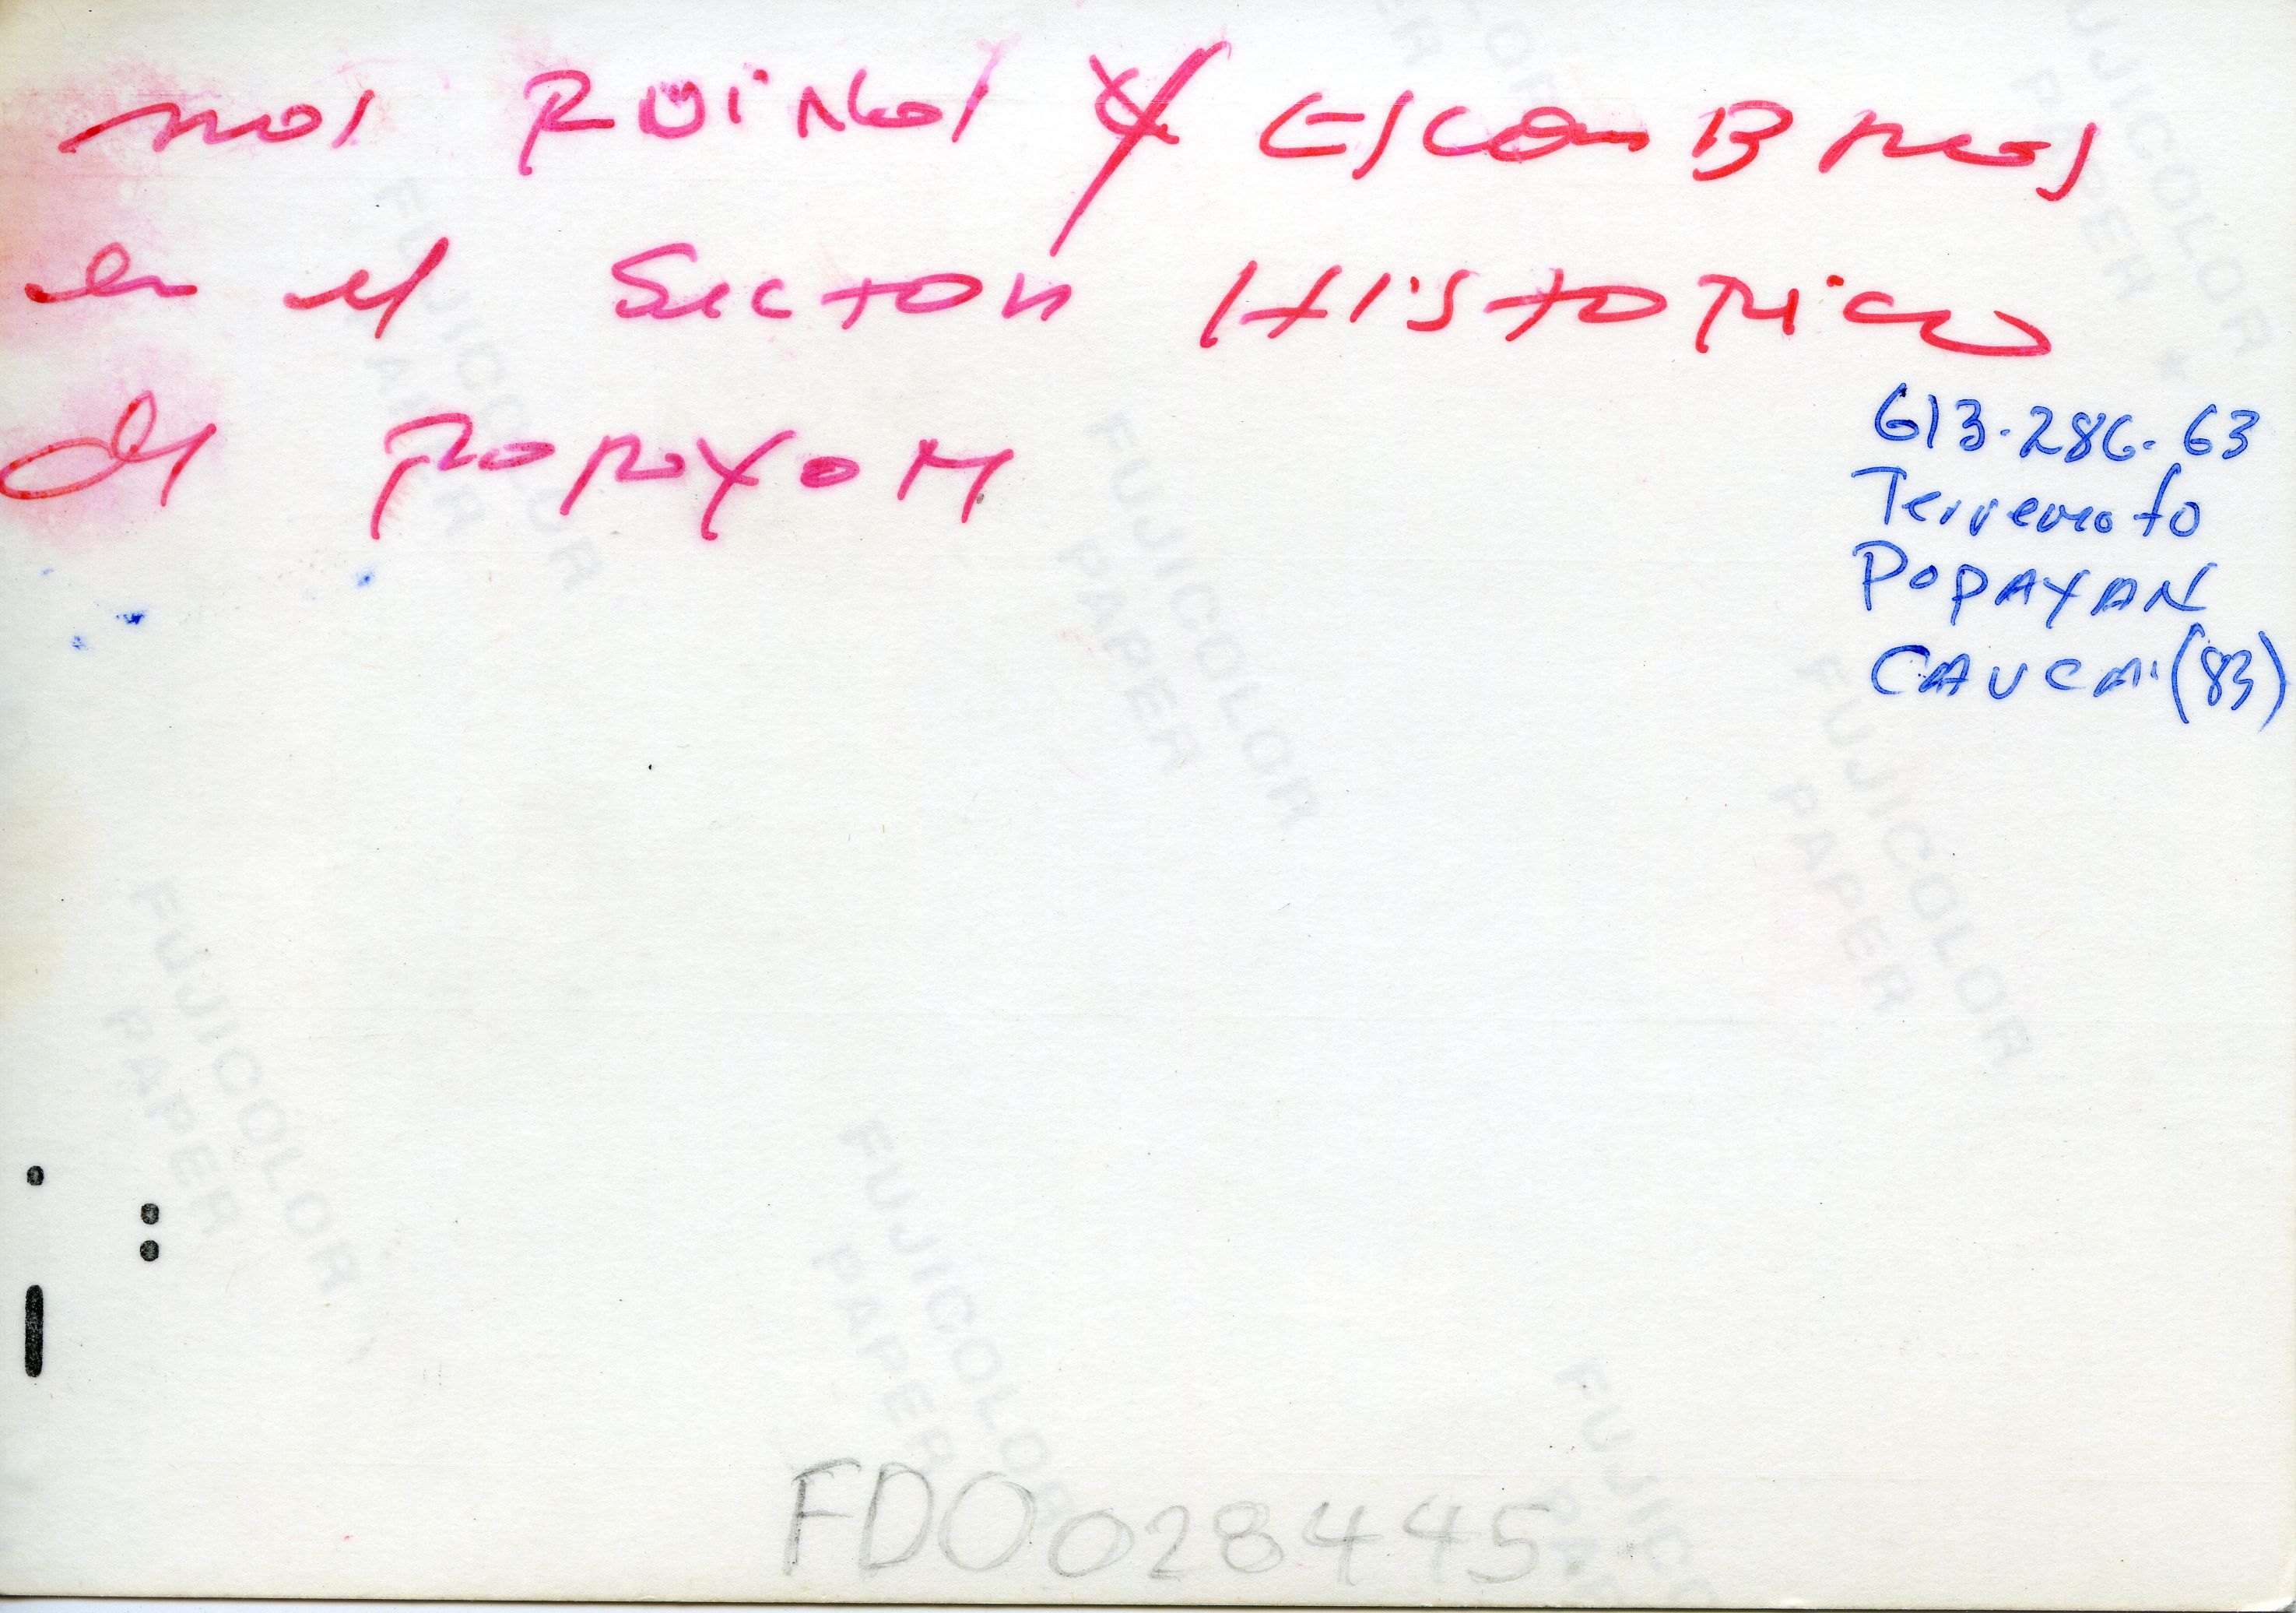 mas RUiNas Y ESCOMBROS
en el SECTOR HiSTORiCO
de POPAYAN
613-286-63
Terremoto
POPAYAN
CAUCA (83)
FUJICOLOR
PAPER
FD0028445